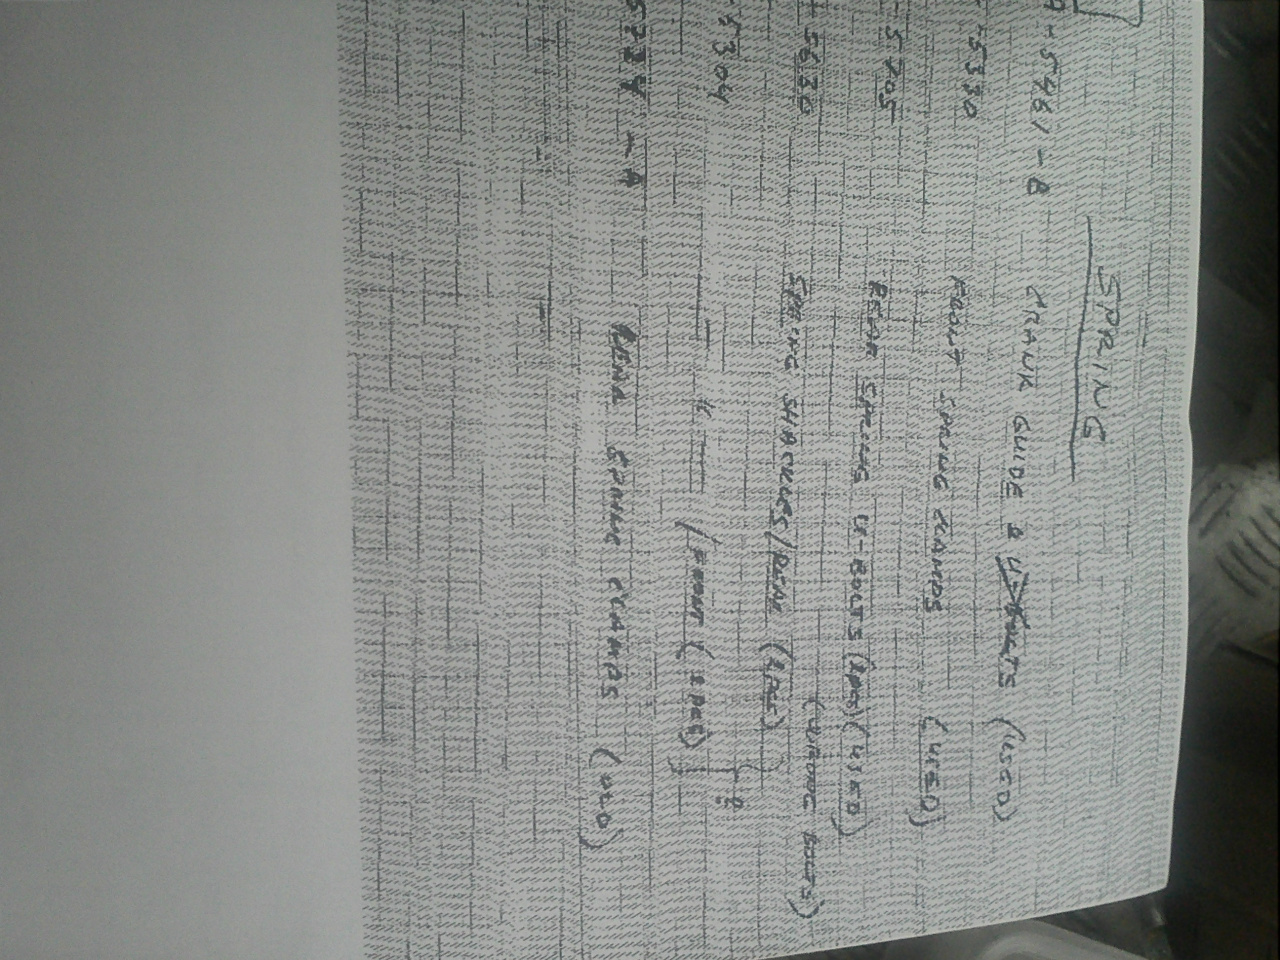 SPRING
A-5461-B CRANK GUIDE & (USED)
-5330 FRONT SPRING CLAMPS (USED)
-5705 REAR SPRING U-BOLTS (2pcs) (USED)
(WRONG BOLTS)
5630 SPRING SHACKLES/REAR (2pcs)
-5304 " /FRONT (2pcs) ?
-A REAR SPRING CLAMPS (USED)